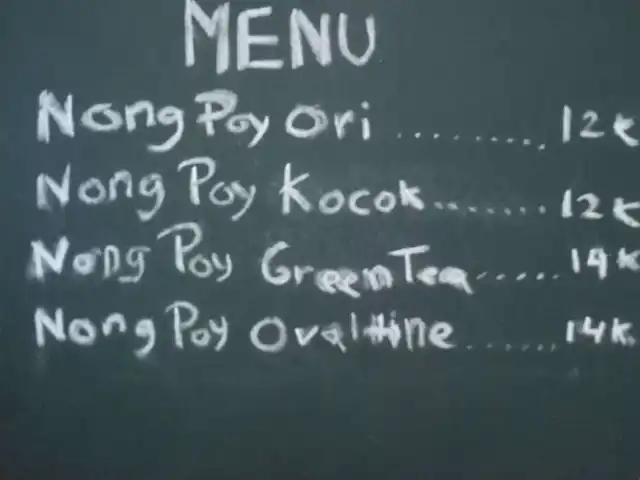 MENU
Nong Poy Ori .......... 12k
Nong Poy Kocok ........ 12k
Nong Poy Green Tea ...... 14k
Nong Poy Ovaltine ....... 14k.